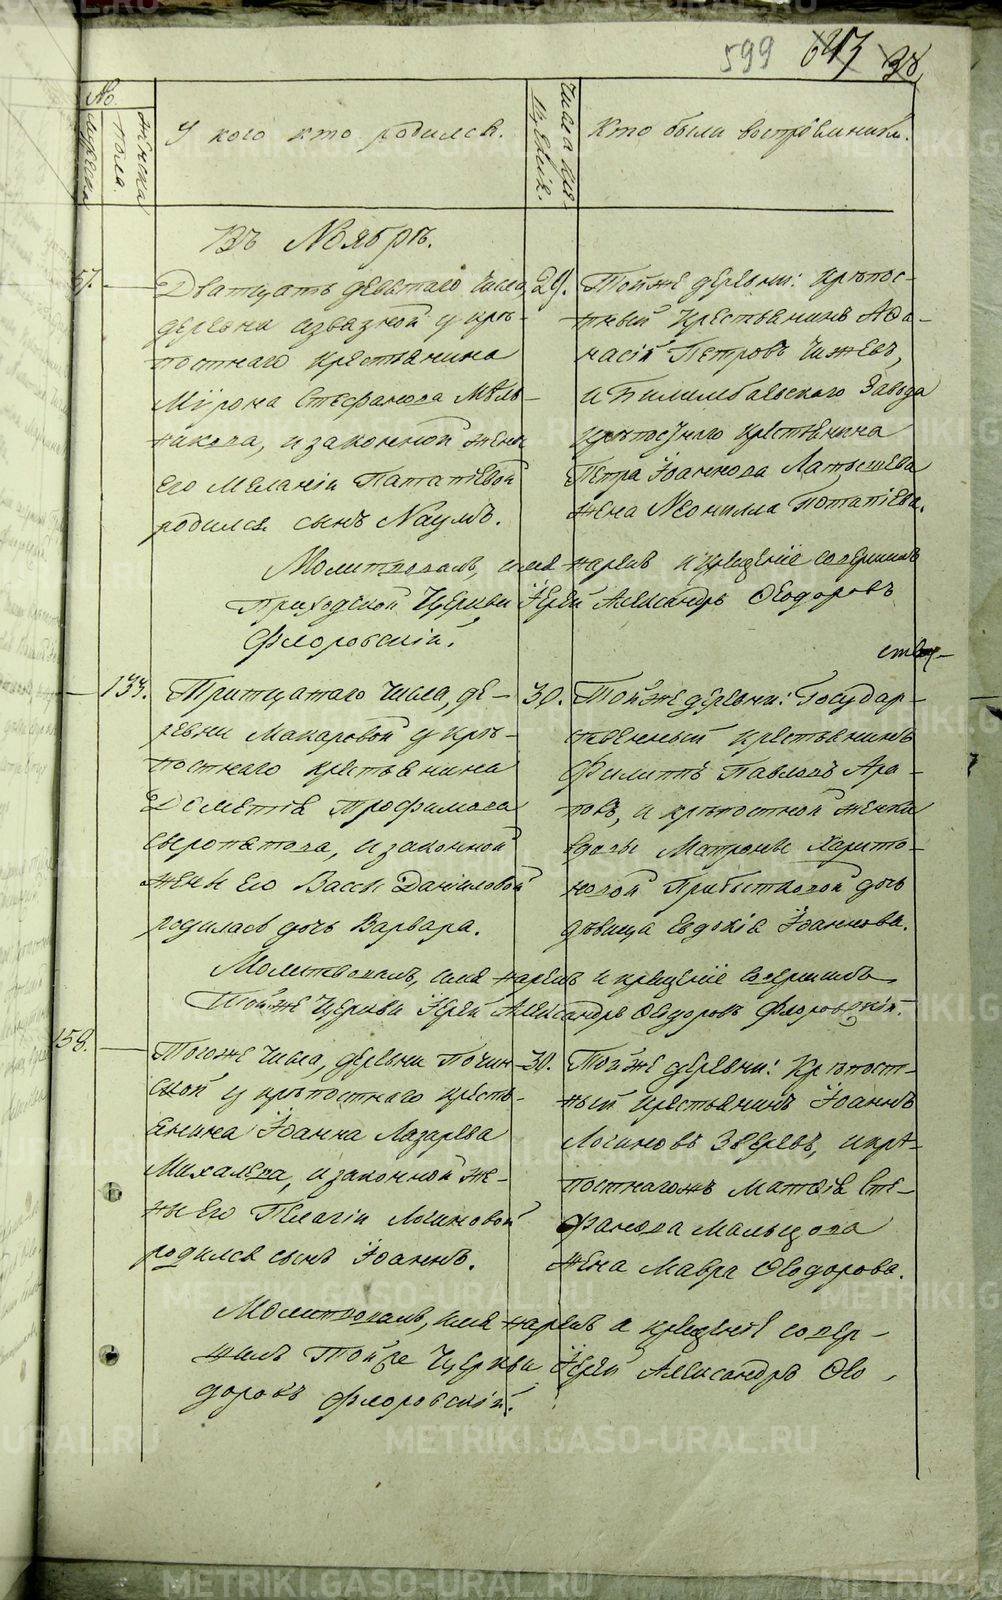 599 643 38
№
мужеска
пола.
женска
У кого кто родился.
Числа кре
щенія.
Кто были воспріемники.
Въ Ноябрѣ.
57.
Дватцать девятаго числа,
деревни Извазной у крѣ-
постнаго крестьянина
Мѵрона Стефанова Мѣль-
никова, и законной жены
его Меланіи Патапіевой
родился сынъ Наумъ.
29.
Тойже деревни: крѣпос-
тный крестьянинъ Афа-
насій Петровъ Чижевъ,
и Билимбаевскаго Завода
крѣпостнаго крестьянина
Петра Іоаннова Латышева
жена Неонилла Потапіева.
Молитвовалъ, имя нарекъ и крещеніе совершилъ
приходской Церкви Іерей Александръ Ѳеодоровъ
Флоровскій.
133.
Тритцатаго числа, де-
ревни Макаровой у крѣ-
постнаго крестьянина
Дометія Трофимова
Сыропятова, и законной
жены его Вассы Даніиловой
родилась дочь Варвара.
30.
ств
Тойже деревни: Государ-
ственный крестьянинъ
Филиппъ Павловъ Ара-
повъ, и крѣпостной женки
вдовы Матроны Харито-
новой Прибытковой дочь
дѣвица Евдокія Іоаннова.
Молитвовалъ, имя нарекъ и крещеніе совершилъ
Тойже Церкви Іерей Александръ Ѳеодоровъ Флоровскій.
158.
Тогоже числа, деревни Почин-
ской у крѣпостнаго кресть-
янина Іоанна Лазарева
Михалева, и законной же-
ны его Пелагіи Логиновой
родился сынъ Іоаннъ.
30.
Тойже деревни: Крѣпост-
ный крестьянинъ Іоаннъ
Логиновъ Зверевъ, и крѣ-
постнагожъ Матѳія Сте-
фанова Мальцова
жена Мавра Ѳеодорова.
Молитвовалъ, имя нарекъ и крещеніе совер-
шилъ Тойже Церкви Іерей Александръ Ѳео-
доровъ Флоровскій.
METRIKI.GASO-URAL.RU